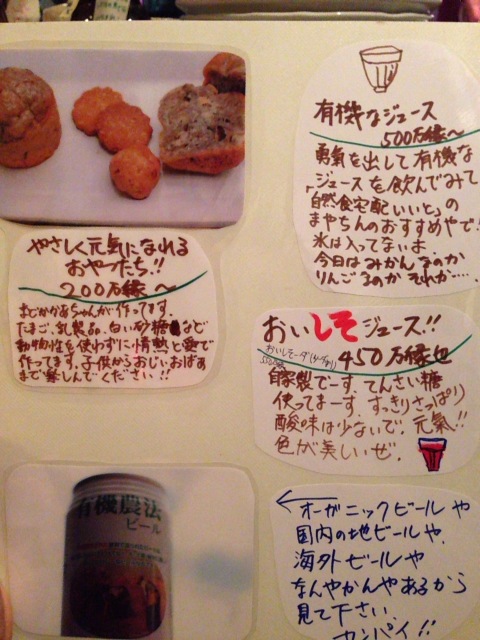 やさしく元気になれる
おやつたち!!
200万縁～
まどかかあちゃんが作ってます。
たまご、乳製品、白い砂糖など
動物性を使わずに情熱と愛で
作ってます。子供からおじぃおばぁ
まで楽しんでください!!
有機農法
ビール
有機なジュース
500万縁～
勇氣を出して有機な
ジュースを飲んでみて
「自然食宅配いいと」の
まやちんのおすすめやで!
氷は入ってないよ
今日はみかんなのか
りんごるのか それか‥‥
おいしそジュース!!
450万縁也
自家製でーす。てんさい糖
使ってまーす。すっきりさっぱり
酸味は少ないで、元氣!!
色が美しいぜ.
オーガニックビールや
国内の地ビールや、
海外ビールや
なんやかんやあるから
見て下さい
カンパイ!!